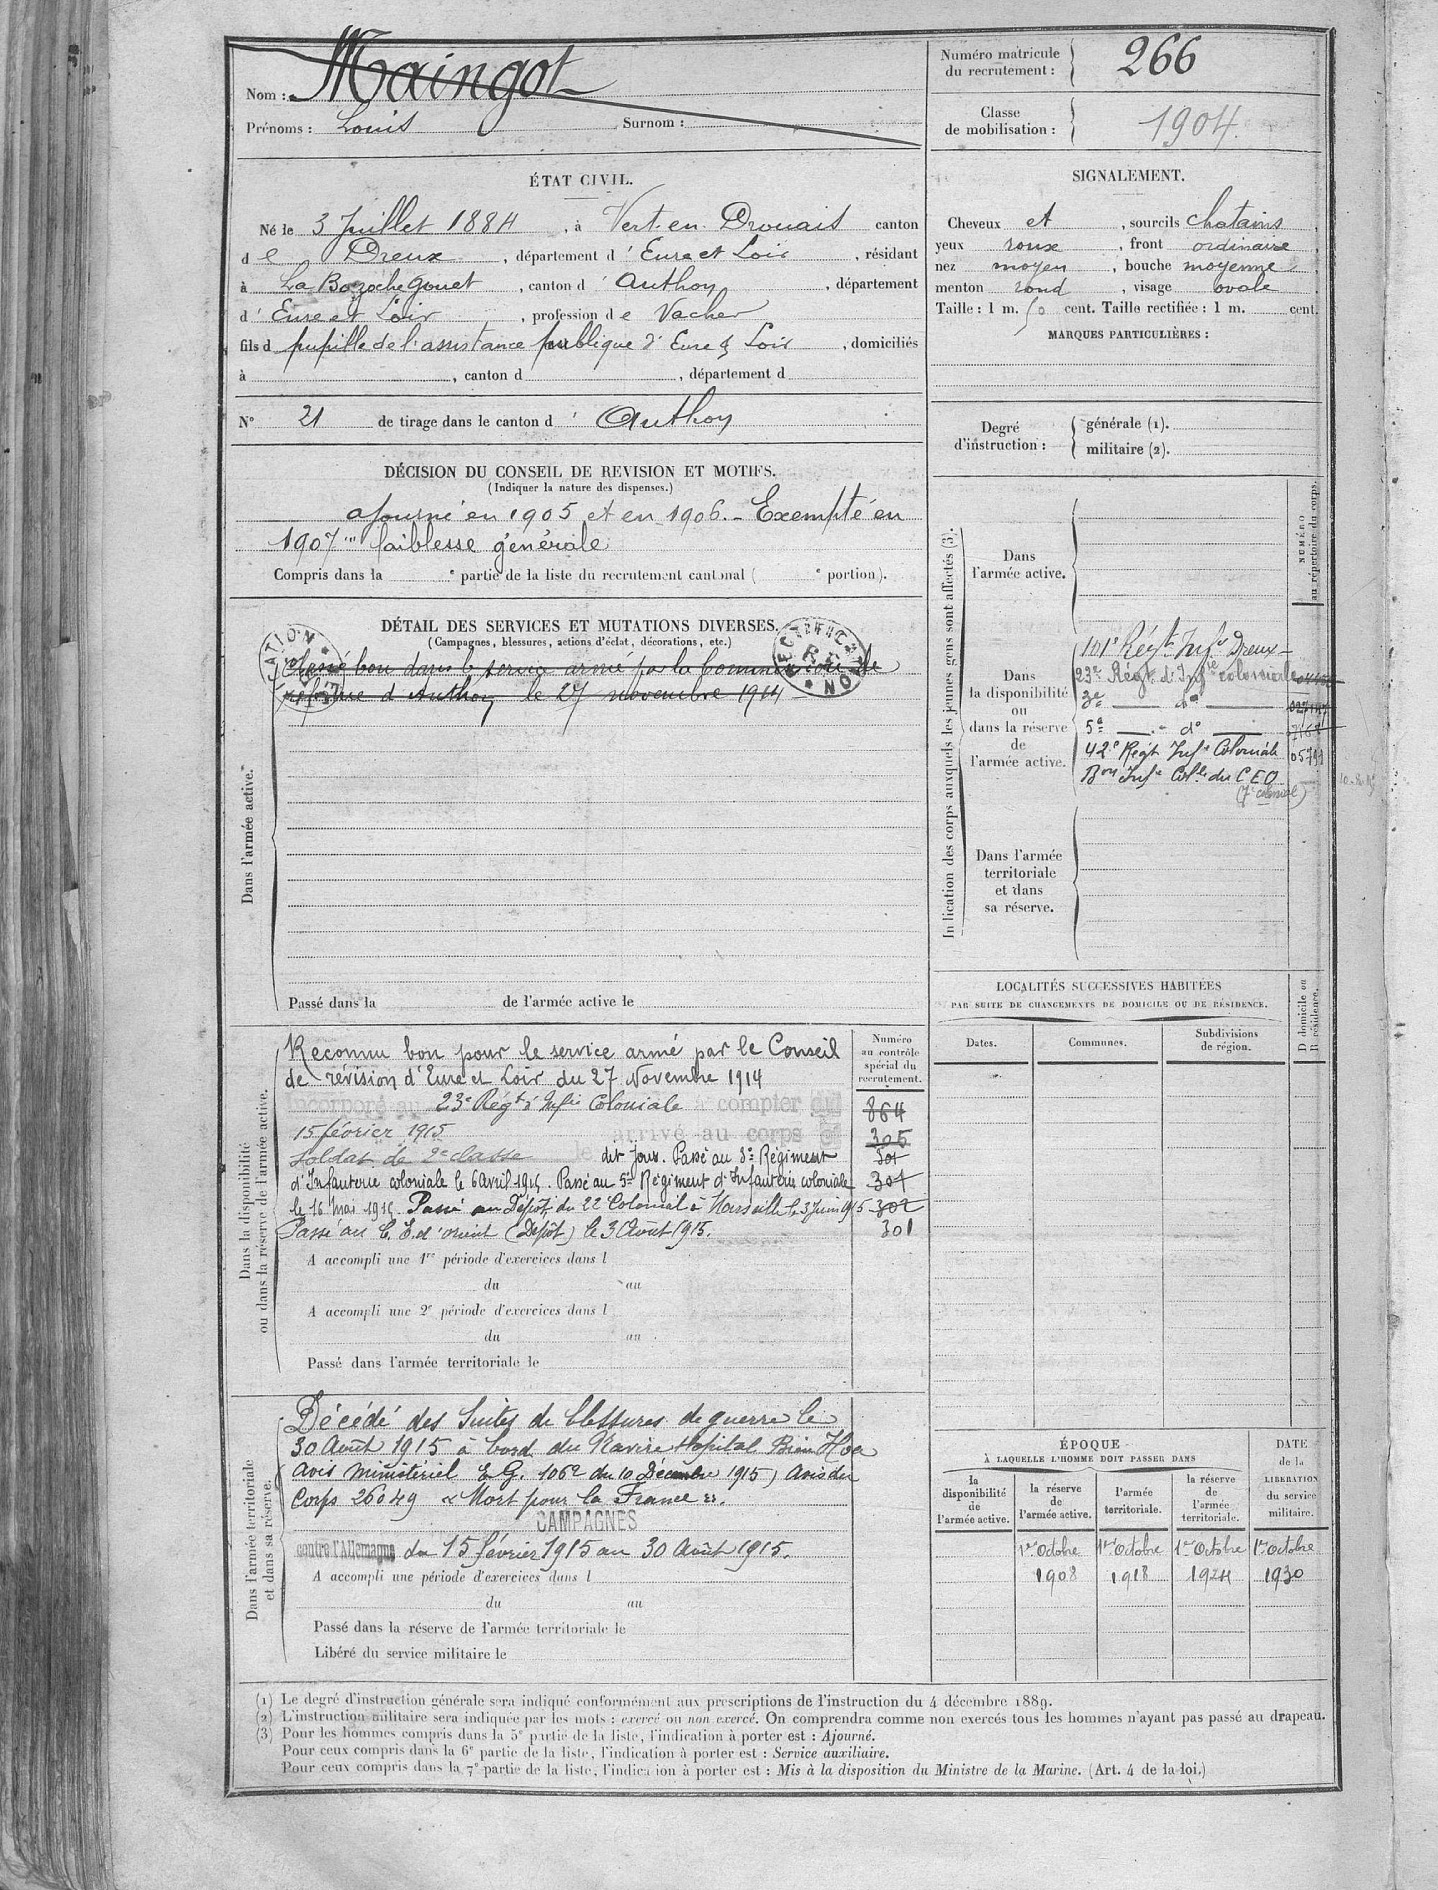 Nom : Maingot
Prénoms : Louis Surnom :
Numéro matricule du recrutement : 266
Classe de mobilisation : 1904
ÉTAT CIVIL.
Né le 3 Juillet 1884, à Vert-en-Drouais canton
de Dreux, département d'Eure et Loir, résidant
à La Bazoche Gouet, canton d'Authon, département
d'Eure et Loir, profession de Vacher
fils d pupille de l'assistance publique d'Eure & Loir, domiciliés
à , canton d , département d
N° 21 de tirage dans le canton d'Authon
SIGNALEMENT.
Cheveux et, sourcils chatains,
yeux roux, front ordinaire,
nez moyen, bouche moyenne,
menton rond, visage ovale.
Taille : 1 m. 50 cent. Taille rectifiée : 1 m. cent.
MARQUES PARTICULIÈRES :
Degré d'instruction :
générale (1).
militaire (2).
DÉCISION DU CONSEIL DE REVISION ET MOTIFS.
(Indiquer la nature des dispenses.)
ajourné en 1905 et en 1906. - Exempté en
1907 "" faiblesse générale
Compris dans la e partie de la liste du recrutement cantonal ( e portion).
DÉTAIL DES SERVICES ET MUTATIONS DIVERSES.
(Campagnes, blessures, actions d'éclat, décorations, etc.)
Classé bon dans le service armé par la Commission de
réforme d'Authon le 27 novembre 1914
Dans l'armée active.
Passé dans la de l'armée active le
Indication des corps auxquels les jeunes gens sont affectés (3).
NUMÉRO au répertoire du corps.
Dans l'armée active.
Dans la disponibilité ou dans la réserve de l'armée active.
101e Régt Infie Dreux
23e Régt d'Infie coloniale
3e — do —
5e — do —
42e Régt Infie Coloniale 05791
Bon Infie Colle du CEO
Dans l'armée territoriale et dans sa réserve.
Dans la disponibilité ou dans la réserve de l'armée active.
Numéro au contrôle spécial du recrutement.
Reconnu bon pour le service armé par le Conseil
de révision d'Eure et Loir du 27 Novembre 1914
Incorporé au 23e Régt d'Infie Coloniale à compter du 864
15 février 1915 arrivé au corps et 305
soldat de 2e classe le dit jour. Passé au 3e Régiment
d'Infanterie coloniale le 6 Avril 1915. Passé au 5e Régiment d'Infanterie coloniale 304
le 16 Mai 1915. Passé au Dépôt du 22e Colonial à Marseille le 3 Juin 1915 302
Passé au C. E. d'orient (Dépôt) le 3 Août 1915. 301
A accompli une 1re période d'exercices dans l
du au
A accompli une 2e période d'exercices dans l
du au
Passé dans l'armée territoriale le
LOCALITÉS SUCCESSIVES HABITÉES
PAR SUITE DE CHANGEMENTS DE DOMICILE OU DE RÉSIDENCE.
Dates. Communes. Subdivisions de région. D domicile ou R résidence.
Dans l'armée territoriale et dans sa réserve.
Décédé des Suites de blessures de guerre le
30 Août 1915 à bord du Navire Hopital Bien Hoa
Avis Ministériel E G. 1062 du 10 Décembre 1915) Avis du
Corps 26049 « Mort pour la France ».
CAMPAGNES
contre l'Allemagne du 15 février 1915 au 30 Août 1915.
A accompli une période d'exercices dans l
du au
Passé dans la réserve de l'armée territoriale le
Libéré du service militaire le
ÉPOQUE
À LAQUELLE L'HOMME DOIT PASSER DANS
la disponibilité de l'armée active.
la réserve de l'armée active.
l'armée territoriale.
la réserve de l'armée territoriale.
DATE de la LIBÉRATION du service militaire.
1er Octobre 1er Octobre 1er Octobre 1er Octobre
1908 1918 1924 1930
(1) Le degré d'instruction générale sera indiqué conformément aux prescriptions de l'instruction du 4 décembre 1889.
(2) L'instruction militaire sera indiquée par les mots : exercé ou non exercé. On comprendra comme non exercés tous les hommes n'ayant pas passé au drapeau.
(3) Pour les hommes compris dans la 5e partie de la liste, l'indication à porter est : Ajourné.
Pour ceux compris dans la 6e partie de la liste, l'indication à porter est : Service auxiliaire.
Pour ceux compris dans la 7e partie de la liste, l'indication à porter est : Mis à la disposition du Ministre de la Marine. (Art. 4 de la loi.)